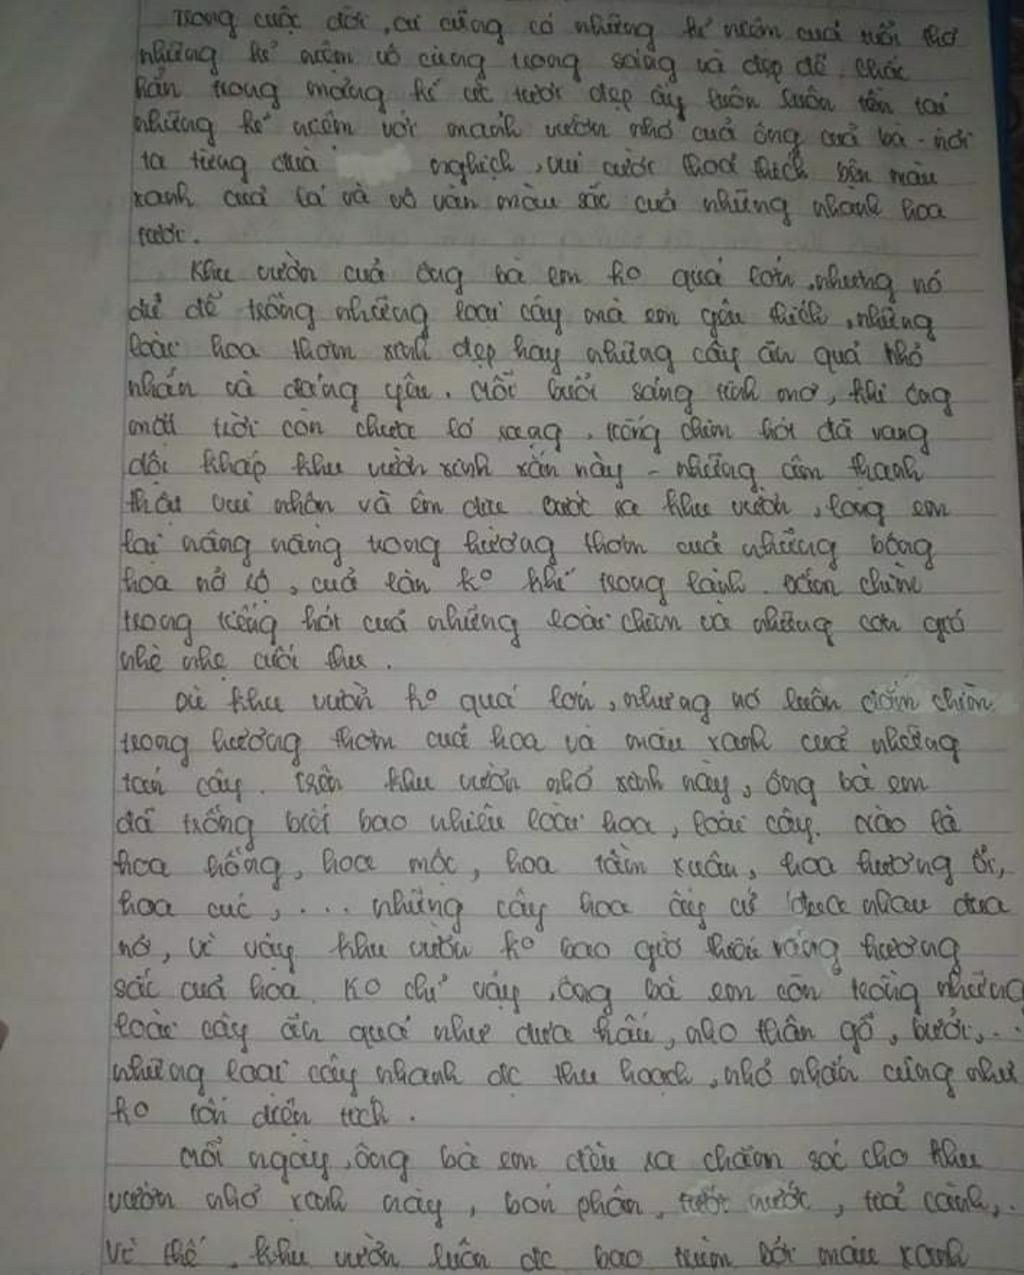 Trong cuộc đời, ai cũng có những kỉ niệm của tuổi thơ
những kỉ niệm vô cùng trong sáng và đẹp đẽ. Chắc
hẳn trong mảng kí ức tươi đẹp ấy luôn luôn tồn tại
những kỉ niệm với mảnh vườn nhỏ của ông của bà - nơi
ta từng đùa nghịch, vui cười thoả thích bên màu
xanh của lá và vô vàn màu sắc của những nhành hoa
tươi.
Khu vườn của ông bà em ko quá lớn, nhưng nó
đủ để trồng những loại cây mà em yêu thích, những
loài hoa thơm xinh đẹp hay những cây ăn quả nhỏ
nhắn và đáng yêu. Mỗi buổi sáng tinh mơ, khi ông
mặt trời còn chưa ló rạng, tiếng chim hót đã vang
dội khắp khu vườn xinh xắn này - những âm thanh
thật vui nhộn và êm dịu. Bước ra khu vườn, lòng em
lại nâng nâng trong hương thơm của những bông
hoa nở rộ, của làn ko khí trong lành. Đắm chìm
trong tiếng hót của những loài chim và những cơn gió
nhè nhẹ cuối thu.
Dù khu vườn ko quá lớn, nhưng nó luôn đắm chìm
trong hương thơm của hoa và màu xanh của những
tán cây. Trên khu vườn nhỏ xinh này, ông bà em
đã trồng biết bao nhiêu loài hoa, loài cây. Nào là
hoa hồng, hoa mộc, hoa tầm xuân, hoa hương ổi,
hoa cúc, ... những cây hoa ấy cứ đua nhau đua
nở, vì vậy khu vườn ko bao giờ thiếu vắng hương
sắc của hoa. Ko chỉ vậy, ông bà em còn trồng những
loài cây ăn quả như dưa hấu, nho thân gỗ, bưởi, ...
những loại cây nhanh đc thu hoạch, nhỏ nhắn cũng như
ko tốn diện tích.
Mỗi ngày, ông bà em đều ra chăm sóc cho khu
vườn nhỏ xanh này, bón phân, tưới nước, tỉa cành, ..
Vì thế, khu vườn luôn đc bao trùm bởi màu xanh